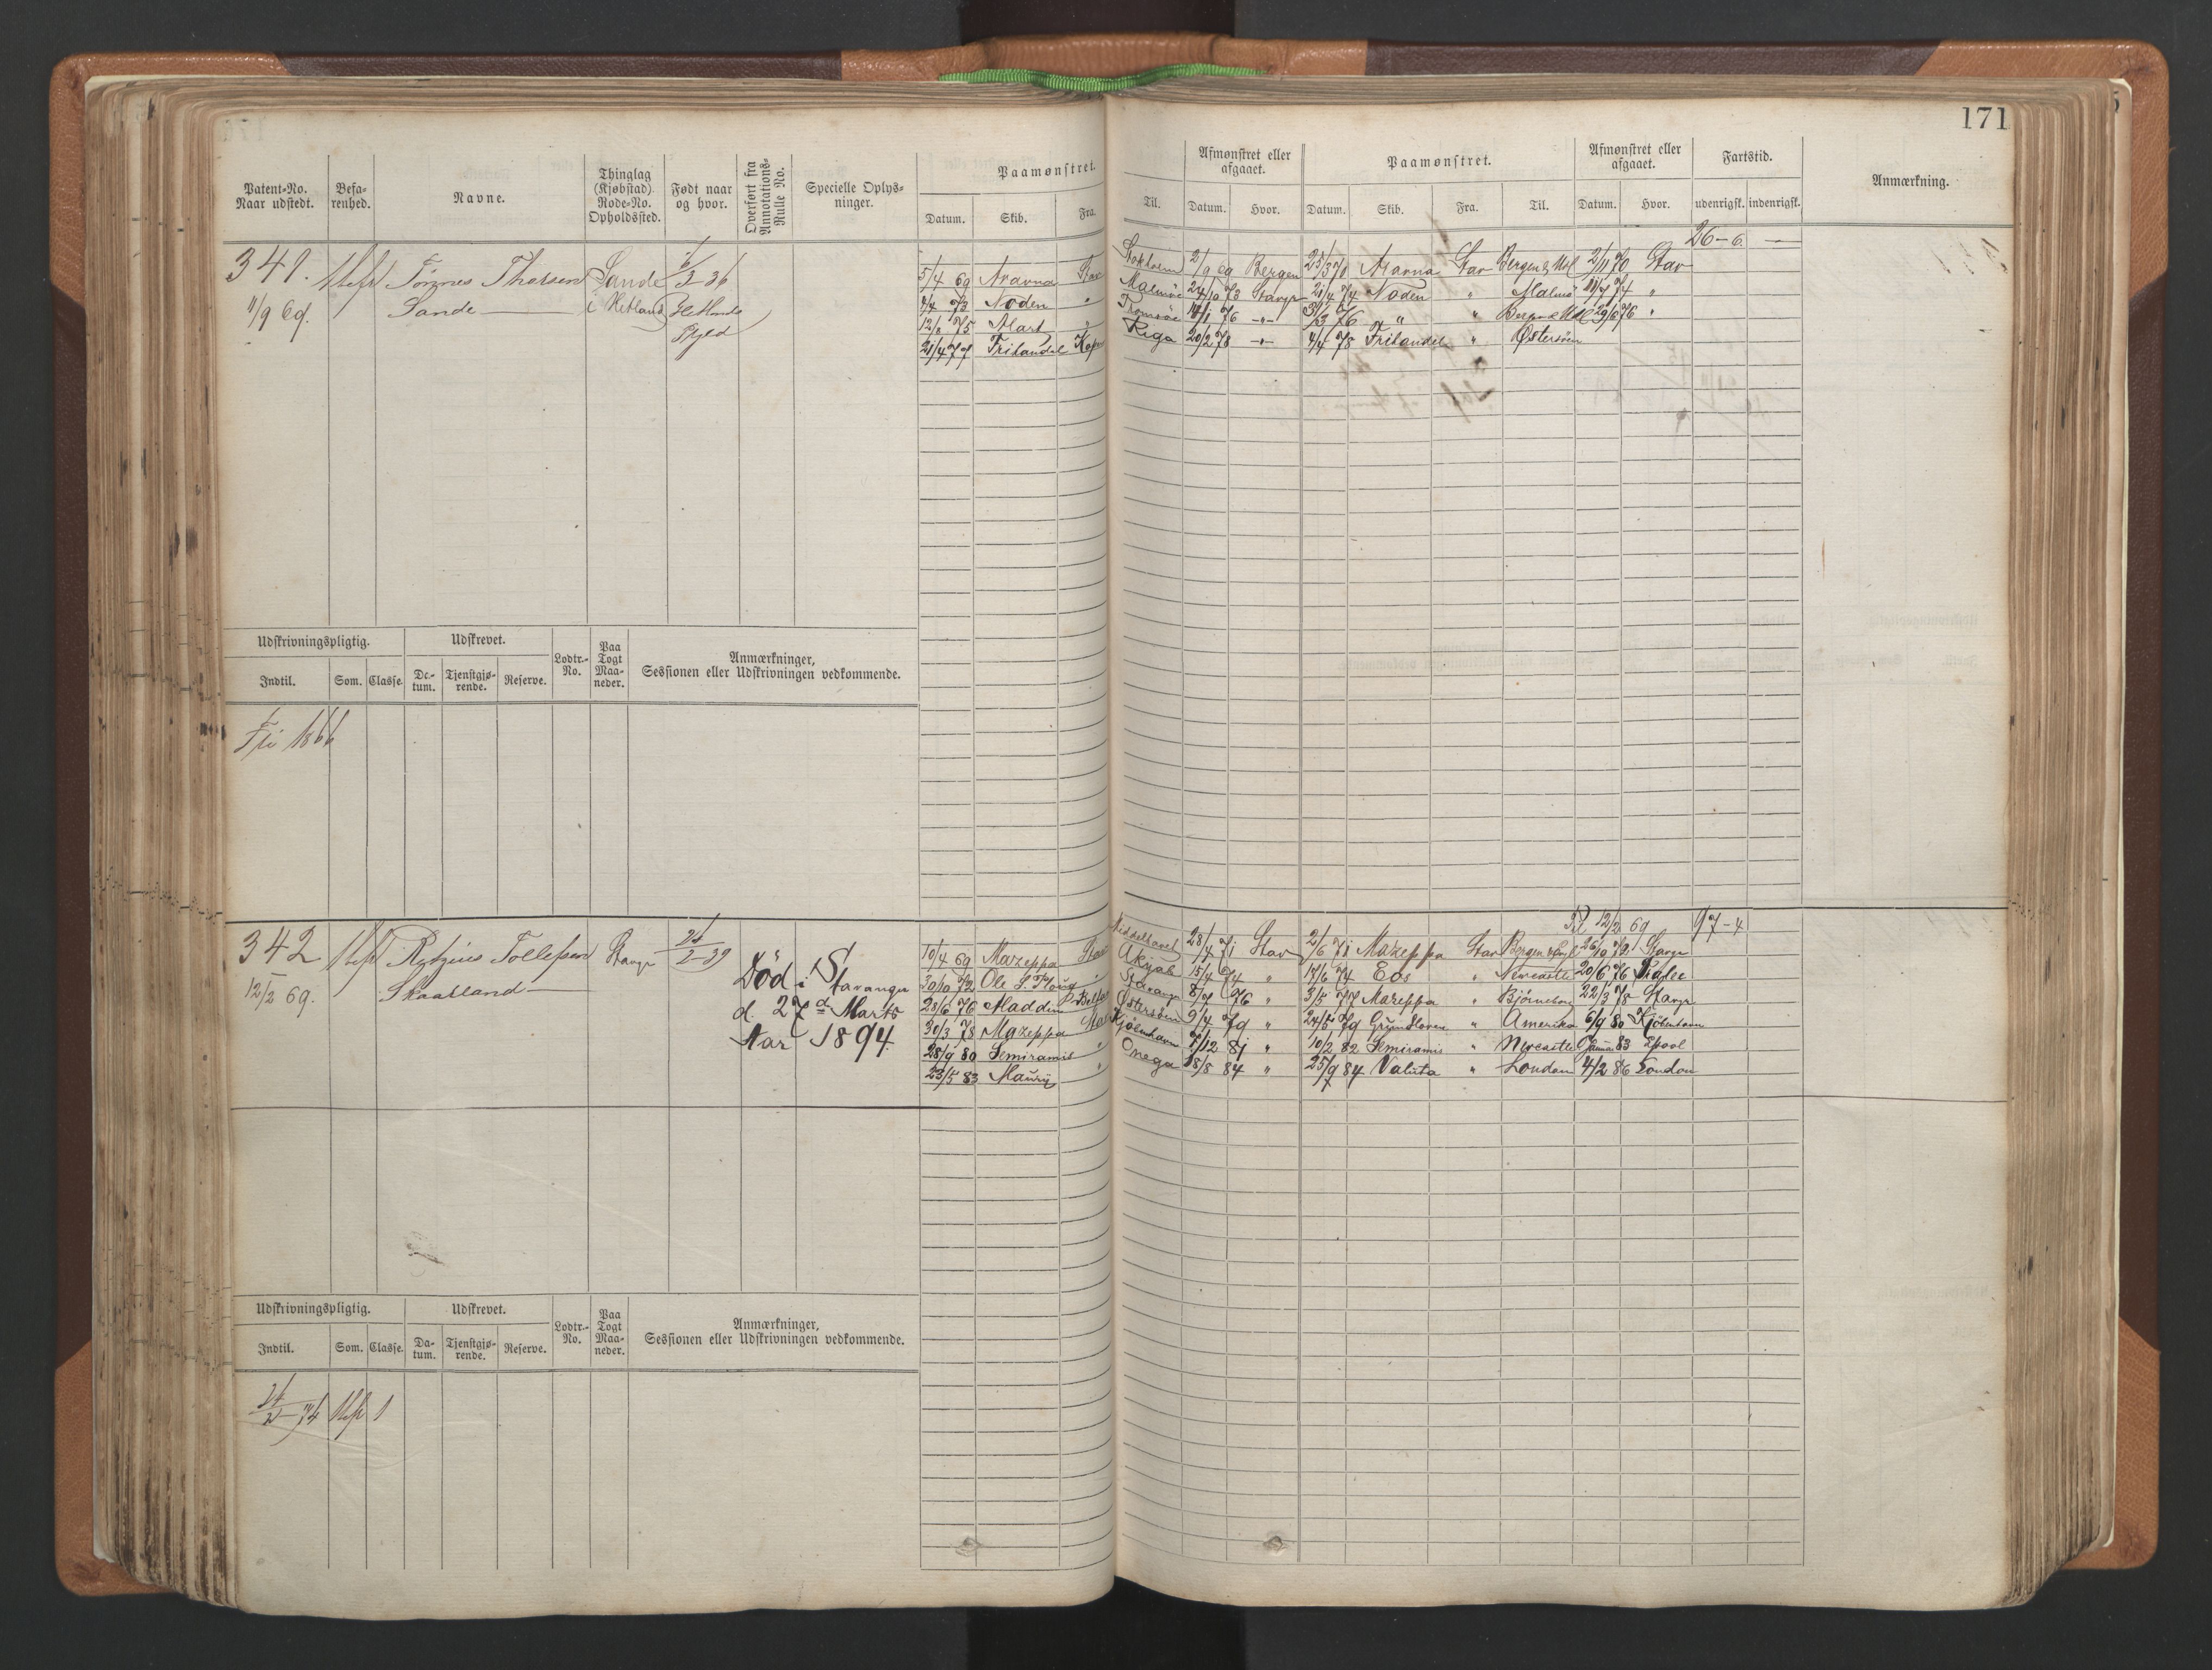 171
Patent-No.
Naar udstedt.
Befa-
renhed.
Navne.
Thinglag
(Kjøbstad)
Rode-No.
Opholdssted.
Født naar
og hvor.
Overført fra
Annotations-
Rulle No.
Specielle Oplys-
ninger.
Paamønstret.
Datum. Skib. Fra.
Til.
Afmønstret eller
afgaaet.
Datum. Hvor.
Paamønstret.
Datum. Skib. Fra. Til.
Afmønstret eller
afgaaet.
Datum. Hvor.
Fartstid.
udenrigsk. indenrigsk.
Anmærkning.
26-6
341. Tønnes Thorsen Sande
11/9 69. Sande i Hetland
6/3 36
Hetlands
5/4 69 Aravna Stav Stokholm 2/9 69 Bergen 25/3 70 Aravna Stav Bergen 2/11 70 Stav
4/4 73 Noden " Malmöe 24/10 73 Stavgr 21/4 74 Noden " Malmö 11/7 74 "
12/ 75 Mart " Tromsöe 14/1 76 -"- 3/3 76 " " Bergen 29/6 76 "
21/4 77 Frihandel Riga 20/2 78 -"- 4/4 78 Frihandel " Østersöen
Udskrivningspligtig.
Indtil. Som. Classe.
Udskrevet.
Da-
tum. Tjenstgjø-
rende. Reserve.
Lodtr.-
No.
Paa
Togt
Maa-
neder.
Anmærkninger,
Sessionen eller Udskrivningen vedkommende.
Fri 1866
12/2 69 97-4
342 Rytzius Tollefsen Stavgr
12/2 69. Skaatland
2-39
Död i Stavanger
d. 27d Marts
Aar 1894
10/4 69 Mazeppa Stav Middelhavet 28/4 71 Stav 2/6 71 Mazeppa Stav Bergen 26/10 72 Stavgr
30/10 72 Ole " Akyab 15/4 74 " 17/6 74 Eos " Newcastle 20/6 76
23/6 76 Stavangr 8/7 76 " 3/5 77 Mazeppa " Bjørneborg 22/3 78 Stavgr
30/3 78 Mazeppa Stav Østersöen 9/4 79 " 24/5 79 Grundloven " Amerika 6/9 80 Kjöbenhavn
28/9 80 Semiramis " Kjöbenhavn 7/12 81 " 10/2 82 Semiramis " Newcastle 9 Januar 83 Lpool
23/5 83 Maury " Onega 18/8 84 " 25/9 84 Valuta " London 4/2 86 London
Udskrivningspligtig.
Indtil. Som. Classe.
Udskrevet.
Da-
tum. Tjenstgjø-
rende. Reserve.
Lodtr.-
No.
Paa
Togt
Maa-
neder.
Anmærkninger,
Sessionen eller Udskrivningen vedkommende.
1